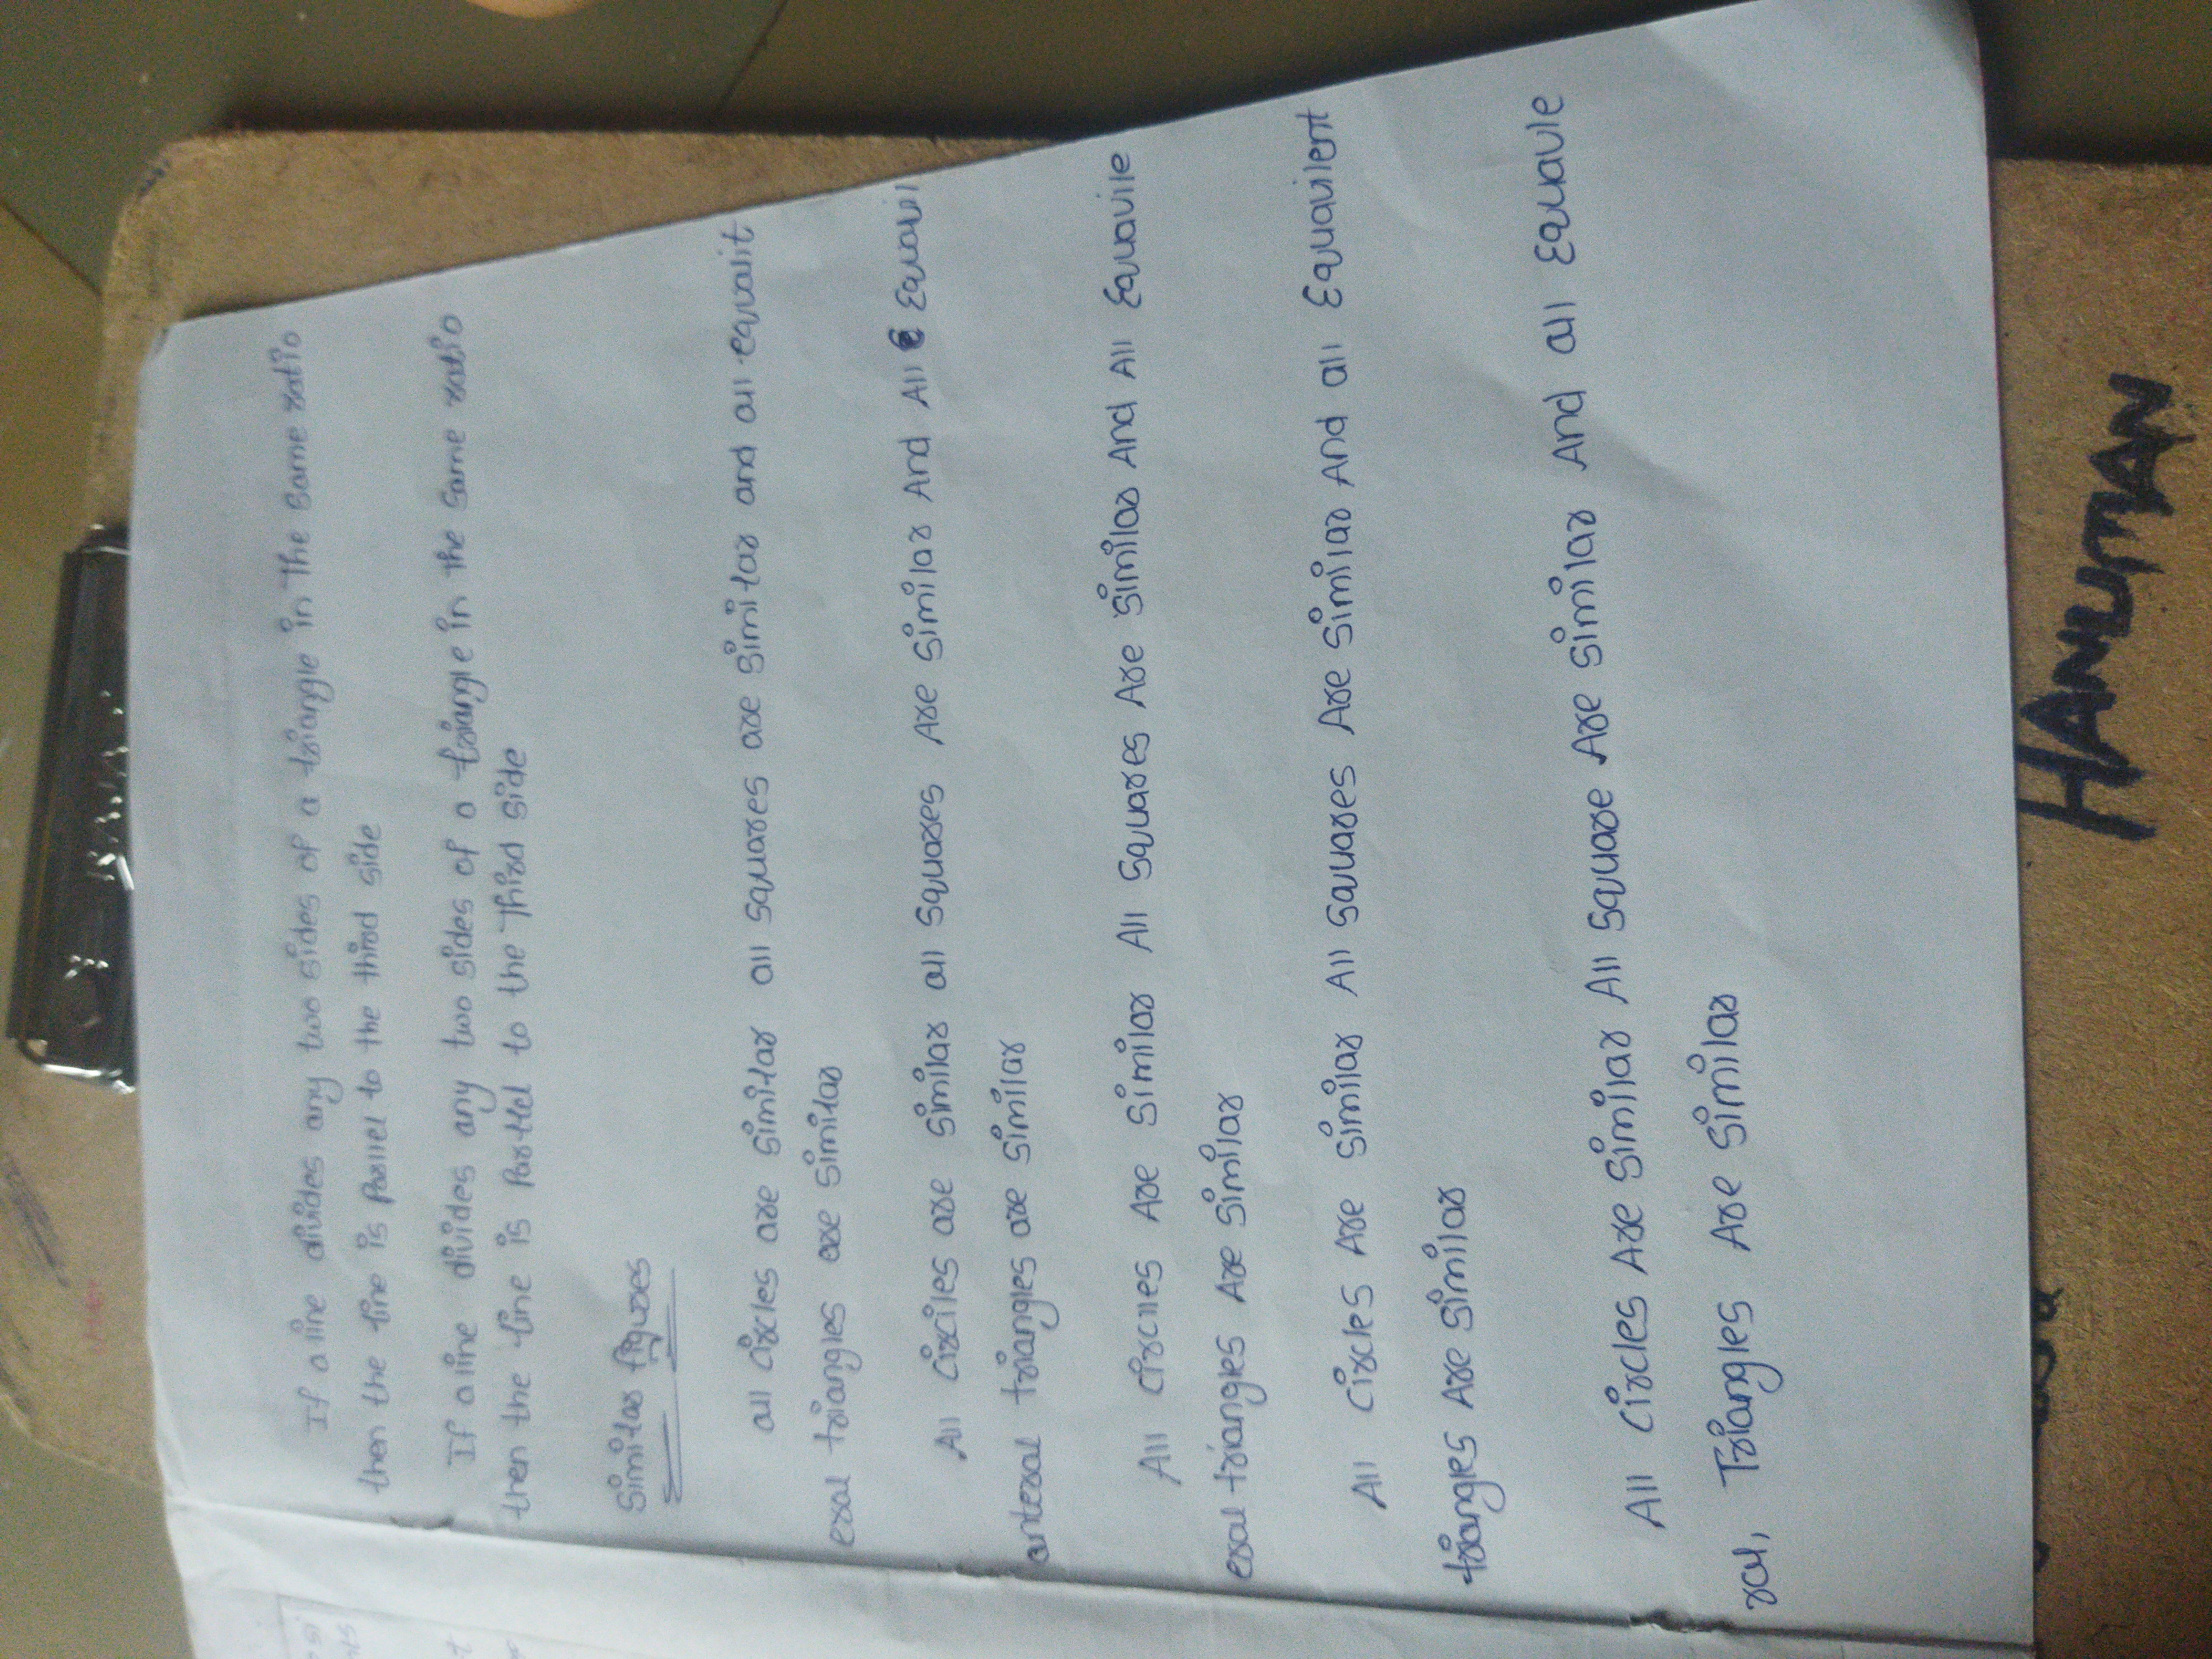 If a line divides any two sides of a triangle in The same ratio
then the line is Parllel to the third side
If a line divides any two sides of a triangle in the same ratio
then the line is Parllel to the Third side
Similar figures
all circles are similar all squares are similar and all equalit
eral triangles are similar
All circiles are similar all squares Are similar And All Equavil
anteral triangles are similar
All circlles Are similar All squares Are similar And All Equavile
eral triangles Are similar
All circles Are similar All squares Are similar And all Equavilent
triangles Are similar
All circles Are similar All square Are similar And all Equavle
ral, Triangles Are similar
HANUMAN